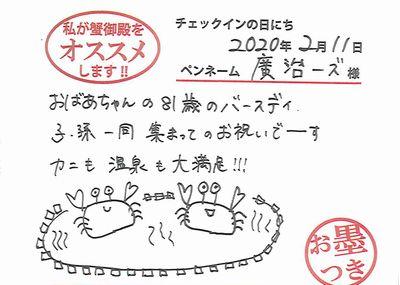 私が蟹御殿を
オススメ
します!!
チェックインの日にち
2020年2月11日
ペンネーム 廣治ーズ 様
おばあちゃんの81歳のバースディ.
子・孫一同 集まってのお祝いでーす
カニも 温泉も大満足!!!
お墨
つき